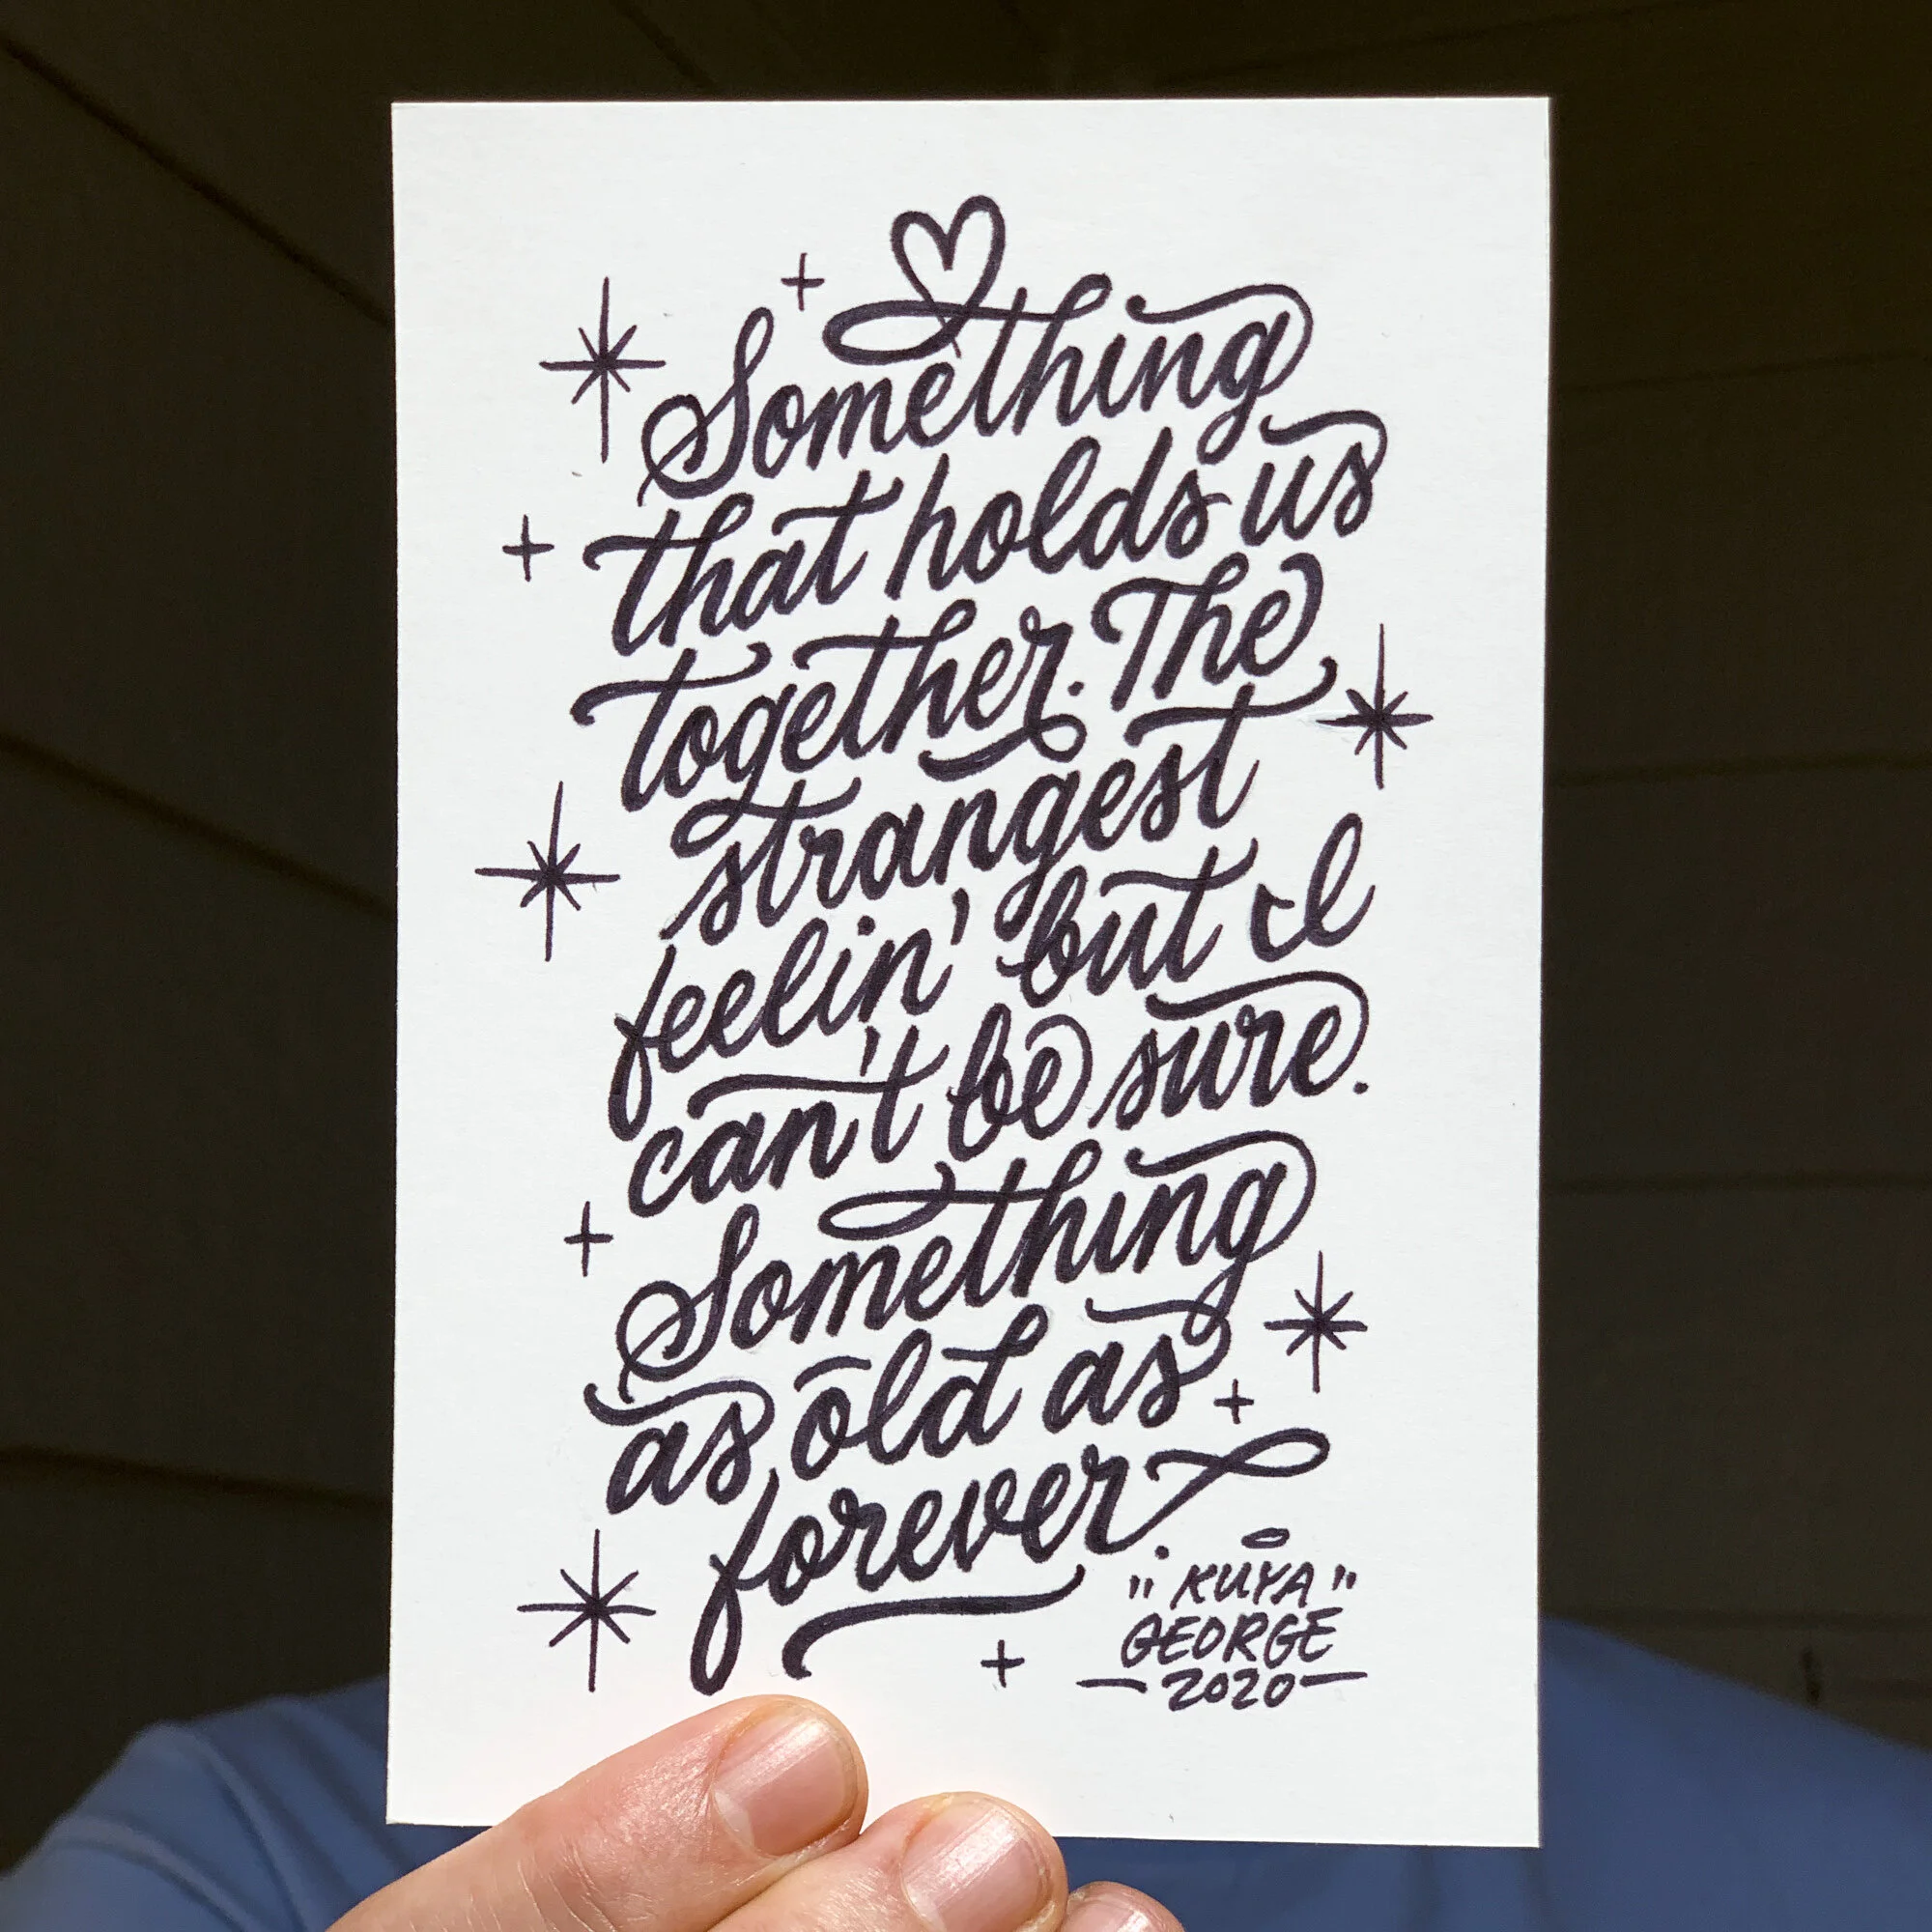 Something
that holds us
together. The
strangest
feelin' but I
can't be sure.
Something
as old as
forever
"KUYA"
GEORGE
-2020-